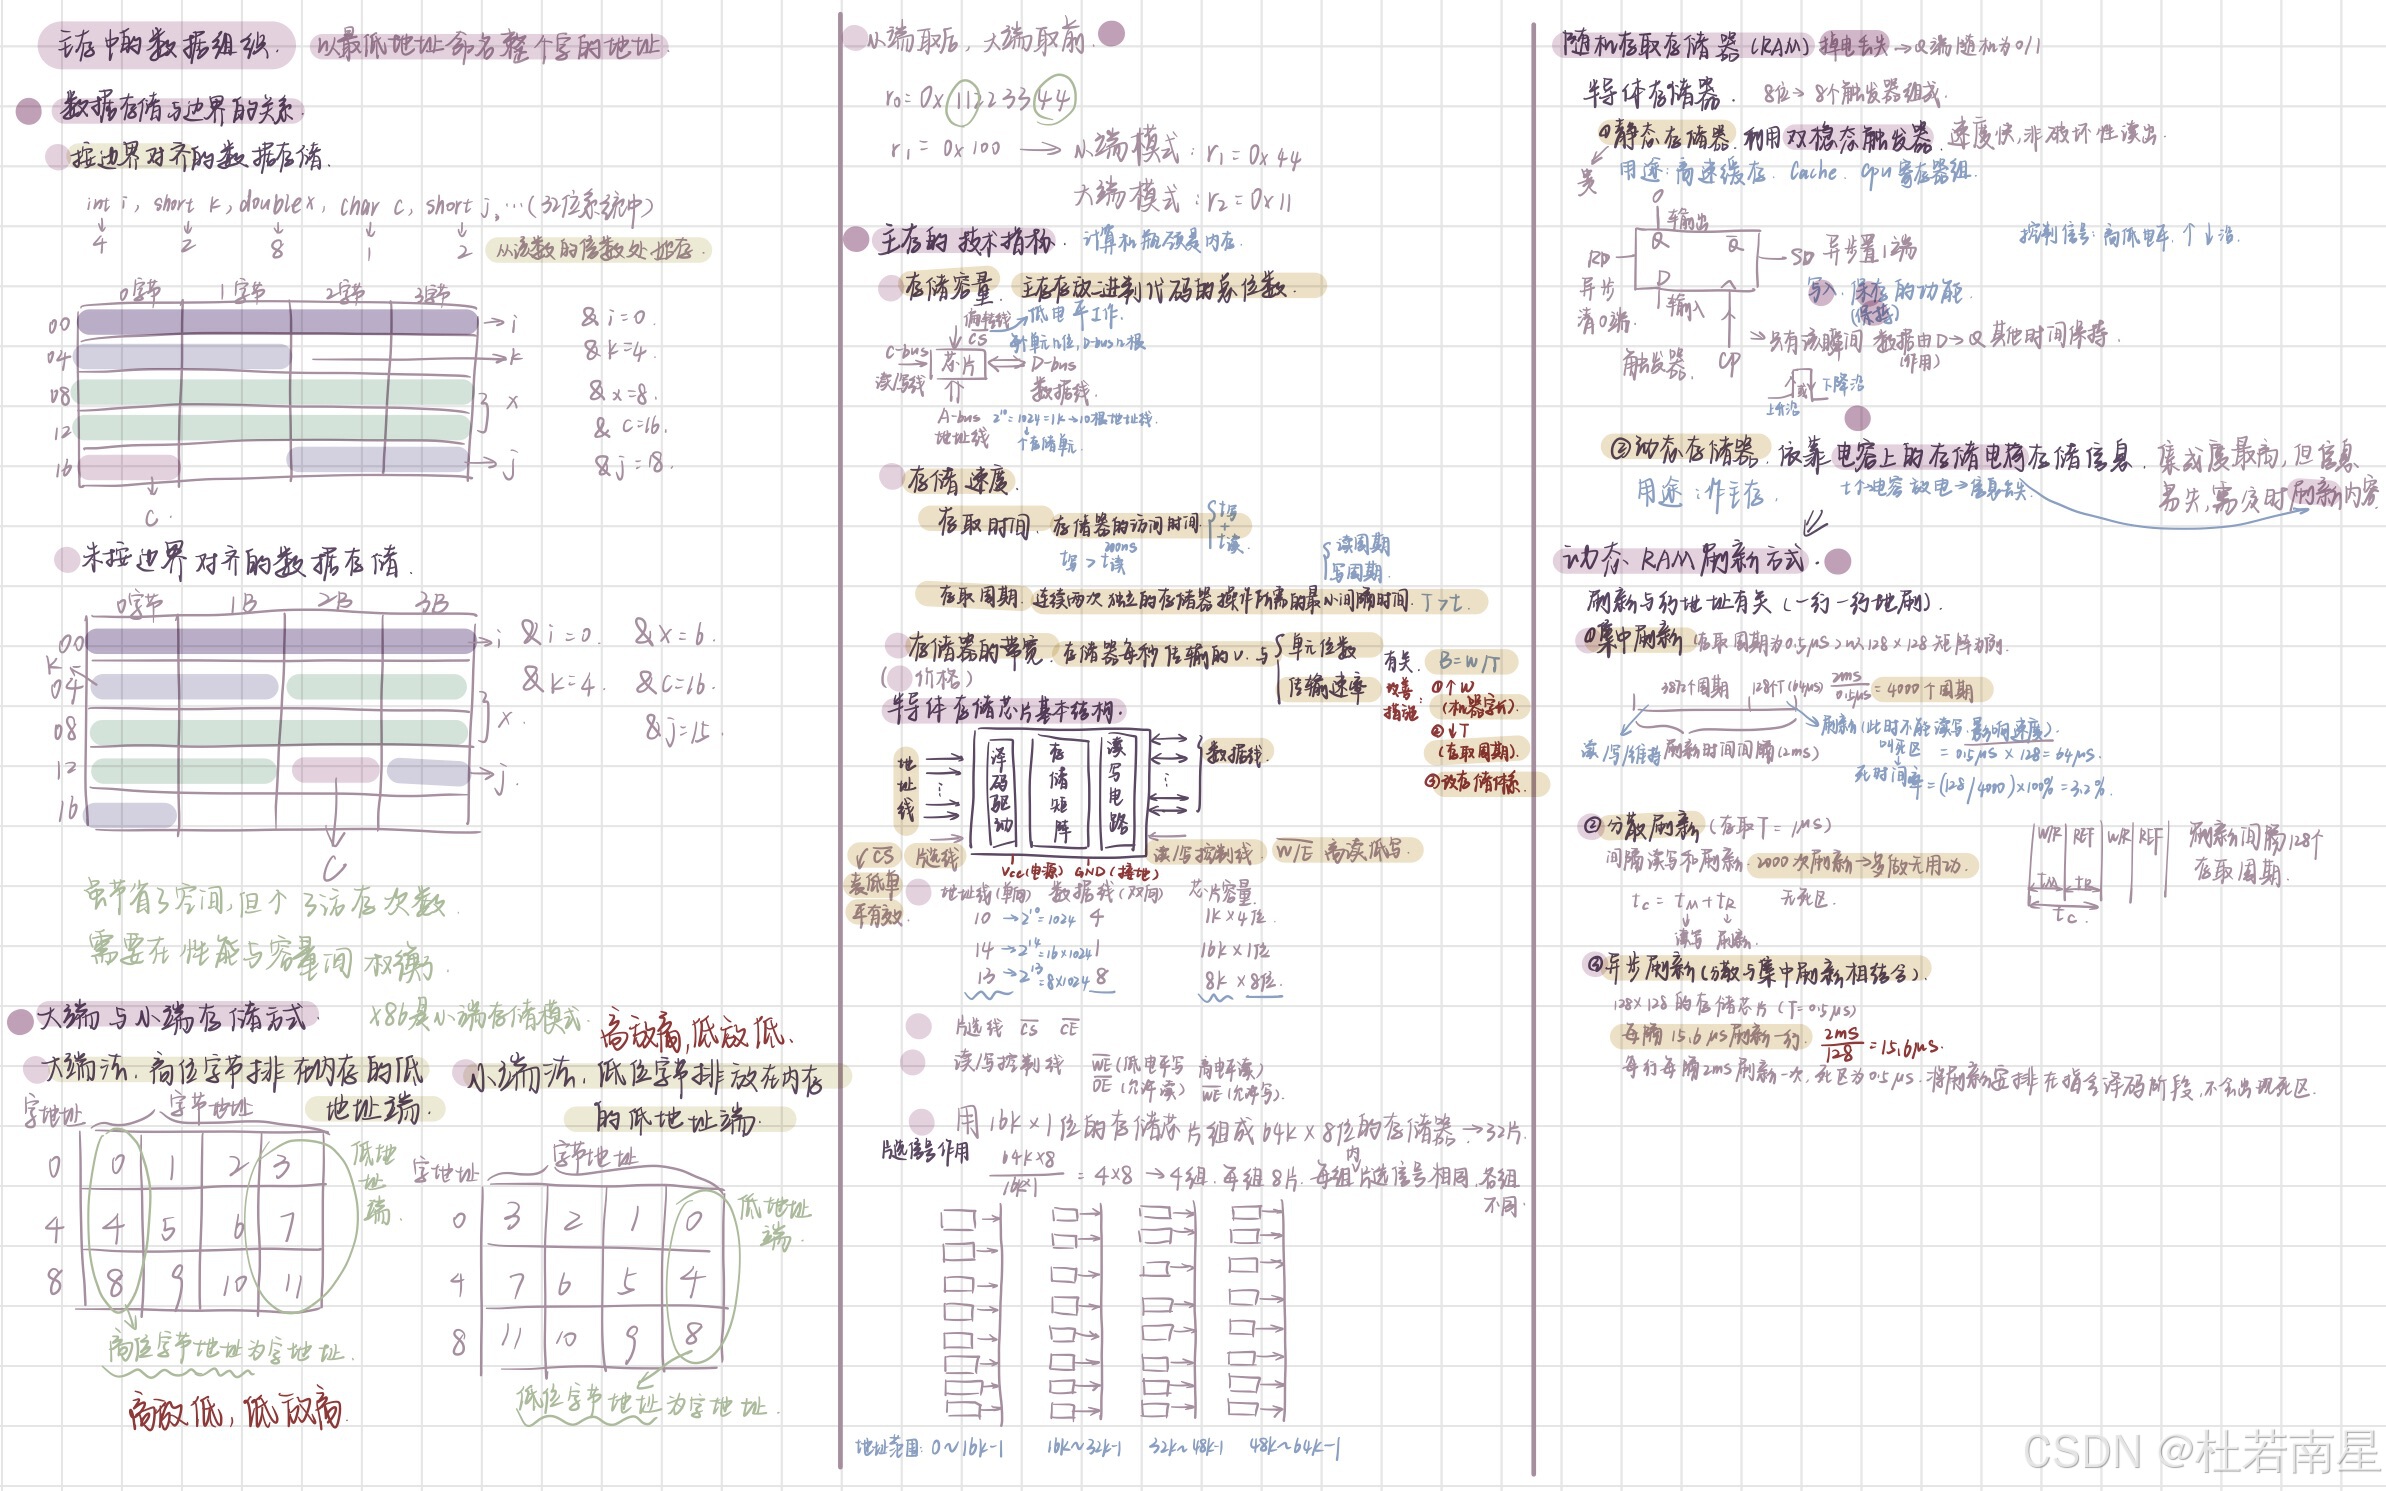 主存中的数据组织. 以最低地址命名整个字的地址.
数据存储与边界的关系.
按边界对齐的数据存储.
int i, short k, double x, char c, short j, …(32位系统中)
4 2 8 1 2 从该数的倍数处地存.
0字节 1字节 2字节 3字节
00 → i &i=0.
04 → k &k=4.
08 x &x=8.
12 &c=16.
16 → j &j=18.
c.
未按边界对齐的数据存储.
0字节 1B 2B 3B
00 → i &i=0. &x=6.
k
04 &k=4. &c=16.
08 x. &j=15.
12 → j.
16
C
虽节省了空间,但个了访存次数.
需要在性能与容量间权衡.
大端与小端存储方式. x86是小端存储模式.
高放高,低放低.
大端法.高位字节排在内存的低
地址端.
小端法.低位字节排放在内存
的低地址端.
字地址 字节地址
0 0 1 2 3
4 4 5 6 7
8 8 9 10 11
低地
址
端.
高位字节地址为字地址.
高放低,低放高.
字地址 字节地址
0 3 2 1 0
4 7 6 5 4
8 11 10 9 8
低地址
端.
低位字节地址为字地址.
小端取后,大端取前.
r0=0x11223344
r1=0x100 → 小端模式:r1=0x44
大端模式:r2=0x11
主存的技术指标. 计算机瓶颈是内存.
存储容量. 主存存放二进制代码的总位数.
片选线 → 低电平工作.
CS 每单元n位,D-bus n根
C-bus 芯片 D-bus
读/写线 数据线.
A-bus 2¹⁰=1024=1k→10根地址线.
地址线 个存储单元.
存储速度.
存取时间. 存储器的访问时间 { t写 + t读.
t写>t读 200ns
{ 读周期
写周期.
存取周期. 连续两次独立的存储器操作所需的最小间隔时间. T>t.
存储器的带宽. 存储器每秒传输的v.与 { 单元位数 传输速率 有关. B=W/T
(价格)
改善 ①↑W
指施: (机器字长).
②↓T
(存取周期).
③改存储体系.
半导体存储芯片基本结构.
地址线 译码驱动 存储矩阵 读写电路 数据线.
CS 片选线 读/写控制线 W/E 高读低写.
Vcc(电源) GND(接地)
表低单
平有效.
地址线(单向) 数据线(双向) 芯片容量.
10 →2¹⁰=1024 4 1K×4位.
14 →2¹⁴=16×1024 1 16k×1位
13 →2¹³=8×1024 8 8k×8位.
片选线 CS CE
读/写控制线 WE(低电平写 高电平读)
OE(允许读) WE(允许写).
用16k×1位的存储芯片组成64k×8位的存储器→32片.
片选信号作用
64k×8
16k×1
=4×8 →4组.每组8片.每组内片选信号相同.各组
不同.
地址范围: 0~16k-1 16k~32k-1 32k~48k-1 48k~64k-1
随机存取存储器(RAM) 掉电丢失→Q端随机为0/1
半导体存储器. 8位→8个触发器组成.
①静态存储器.利用双稳态触发器.速度快,非破坏性读出.
贵 用途:高速缓存. Cache. cpu寄存器组.
0
输出
Q Q
RD SD 异步置1端
D
异步
清0端. 输入
控制信号:高低电平. ↑↓沿.
写入.保存的功能.
(保持)
→只有该瞬间 数据由D→Q 其他时间保持.
(作用)
触发器. CP
或 下降沿
上升沿
②动态存储器.依靠电容上的存储电荷存储信息.集成度最高,但信息
用途:作主存. t个→电容放电→信息丢失. 易失,需及时刷新内容.
动态 RAM 刷新方式.
刷新与行地址有关(一行一行地刷).
①集中刷新(存取周期为0.5μs)以128×128矩阵为例.
3872个周期 128个T(64μs) 2ms/0.5μs=4000个周期
刷新(此时不能读写.影响速度).
读/写/维持 刷新时间间隔(2ms) 叫死区 =0.5μs×128=64μs.
死时间率=(128/4000)×100%=3.2%.
②分散刷新(存取T=1μs)
间隔读写和刷新.2000次刷新→多做无用功.
tc=tM+tR 无死区.
读写 刷新.
W/R REF W/R REF 刷新间隔128个
存取周期.
tM tR
tc.
③异步刷新(分散与集中刷新相结合).
128×128的存储芯片(T=0.5μs)
每隔15.6μs刷新一行. 2ms/128=15.6μs.
每行每隔2ms刷新一次.死区为0.5μs.将刷新安排在指令译码阶段,不会出现死区.
CSDN @杜若南星